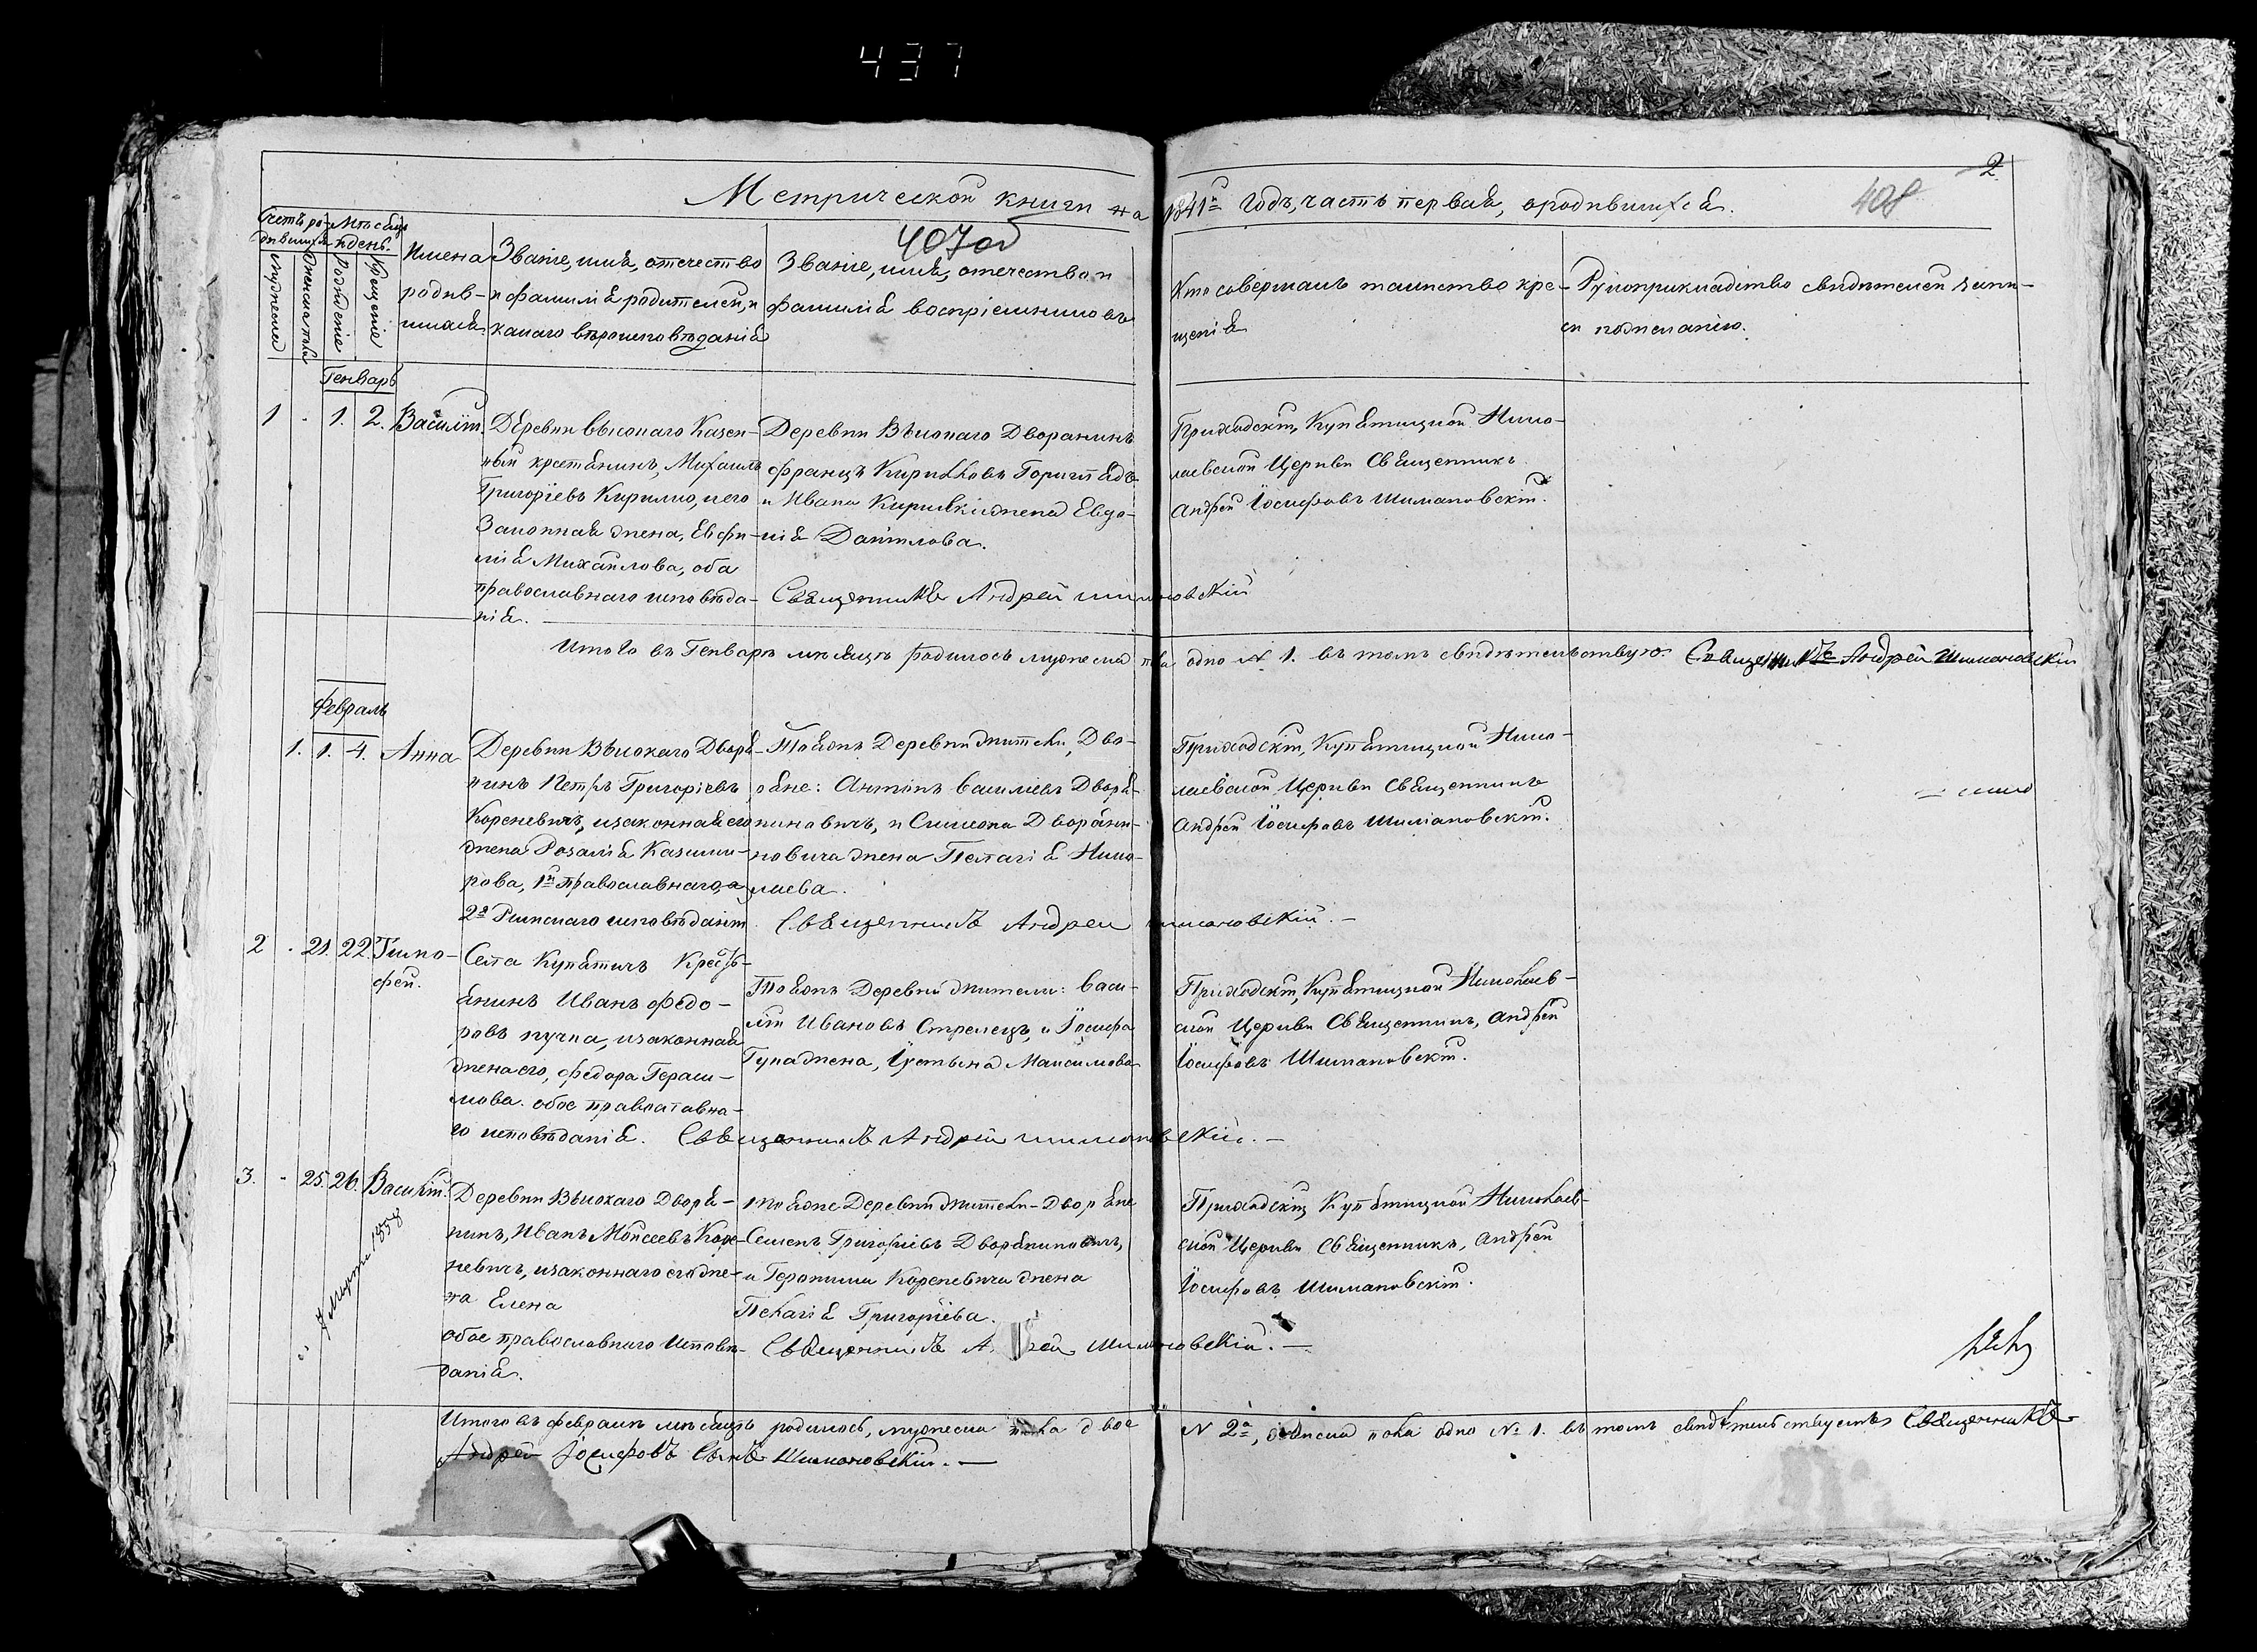 437
2
Метрической книги на 1841й годъ, часть первая, о родившихся.
408
407об
Счетъ ро-
дившихся
Мужеска
Женска пола
Мѣсяцъ
и день.
Рожденiе
Крещенiе
Имена
родив-
шихся.
Званiе, имя, отечество
и фамилiя родителей, и
какаго вѣроисповѣданiя
Званiе, имя, отечество и
фамилiя воспрiемниковъ
Кто совершалъ таинство кре-
щенiя
Рукоприкладство свидѣтелей запи-
си по желанiю.
Генварь
1 - 1. 2. Василiй.
Деревни Высокаго Казен-
ный крестьянинъ, Михаилъ
Григорiевъ Кирилко, и его
Законная жена, Евфи-
мiя Михайлова, оба
православнаго исповѣда-
нiя.
Деревни Высокаго Дворянинъ
Францъ Кириковъ
и Ивана жена Евдо-
кiя Данилова.
Священникъ Андрей Шимановскiй
Приходскiй, Купятицкой Нико-
лаевской Церкви Священникъ
Андрей Iосифовъ Шимановскiй.
Итого въ Генварѣ мѣсяцѣ родилось мужеска пола одно № 1. въ томъ свидѣтельствую. Священникъ Андрей Шимановскiй
Февраль
1. 1. 4. Анна
Деревни Высокаго Дворя-
нинъ Петръ Григорiевъ
Кореневичъ, и законная его
жена Розалiя Казими-
рова, 1й православнаго, а
2я Римскаго исповѣданiй
Тоя онъ Деревни жители, Дво-
ряне: Антонъ Василiевъ Дворя-
ниновичъ, и Симеона Дворяни-
новича жена Пелагiя Нико-
лаева.
Священникъ Андрей Шимановскiй. -
Приходскiй, Купятицкой Нико-
лаевской Церкви Священникъ
Андрей Iосифовъ Шимановскiй.
2 - 21. 22. Тимо-
фей.
Села Купятичъ Кресть-
янинъ Иванъ Федо-
ровъ и законная
жена его, Федора Гераси-
мова. обое православна-
го исповѣданiя.
Тоя онъ Деревни жители: Васи-
лiй Ивановъ Стрелецъ, и Iосифа
жена, Iустьяна Максимова
Священникъ Андрей Шимановскiй. -
Приходскiй, Купятицкой Николаев-
ской Церкви Священникъ, Андрей
Iосифовъ Шимановскiй.
3. - 25. 26. Василiй.
1858
Деревни Высокаго Дворя-
нинъ, Иванъ Мойсеевъ Коре-
невичъ, и законнаго его же-
на Елена
обое православнаго Исповѣ-
данiя.
тоя оне Деревни жители - Дворяне
Семенъ Григорiевъ Дворяниновичъ,
и Геронима Кореневича жена
Пелагiя Григорiева.
Священникъ Андрей Шимановскiй. -
Приходскiй Купятицкой Николаев-
ской Церкви Священникъ, Андрей
Iосифовъ Шимановскiй.
Итого въ февралѣ мѣсяцѣ родилось, мужеска пола двое № 2а, женска пола одно № 1. въ томъ свидѣтельствуетъ Священникъ
Андрей Iосифовъ Сынъ Шимановскiй. -